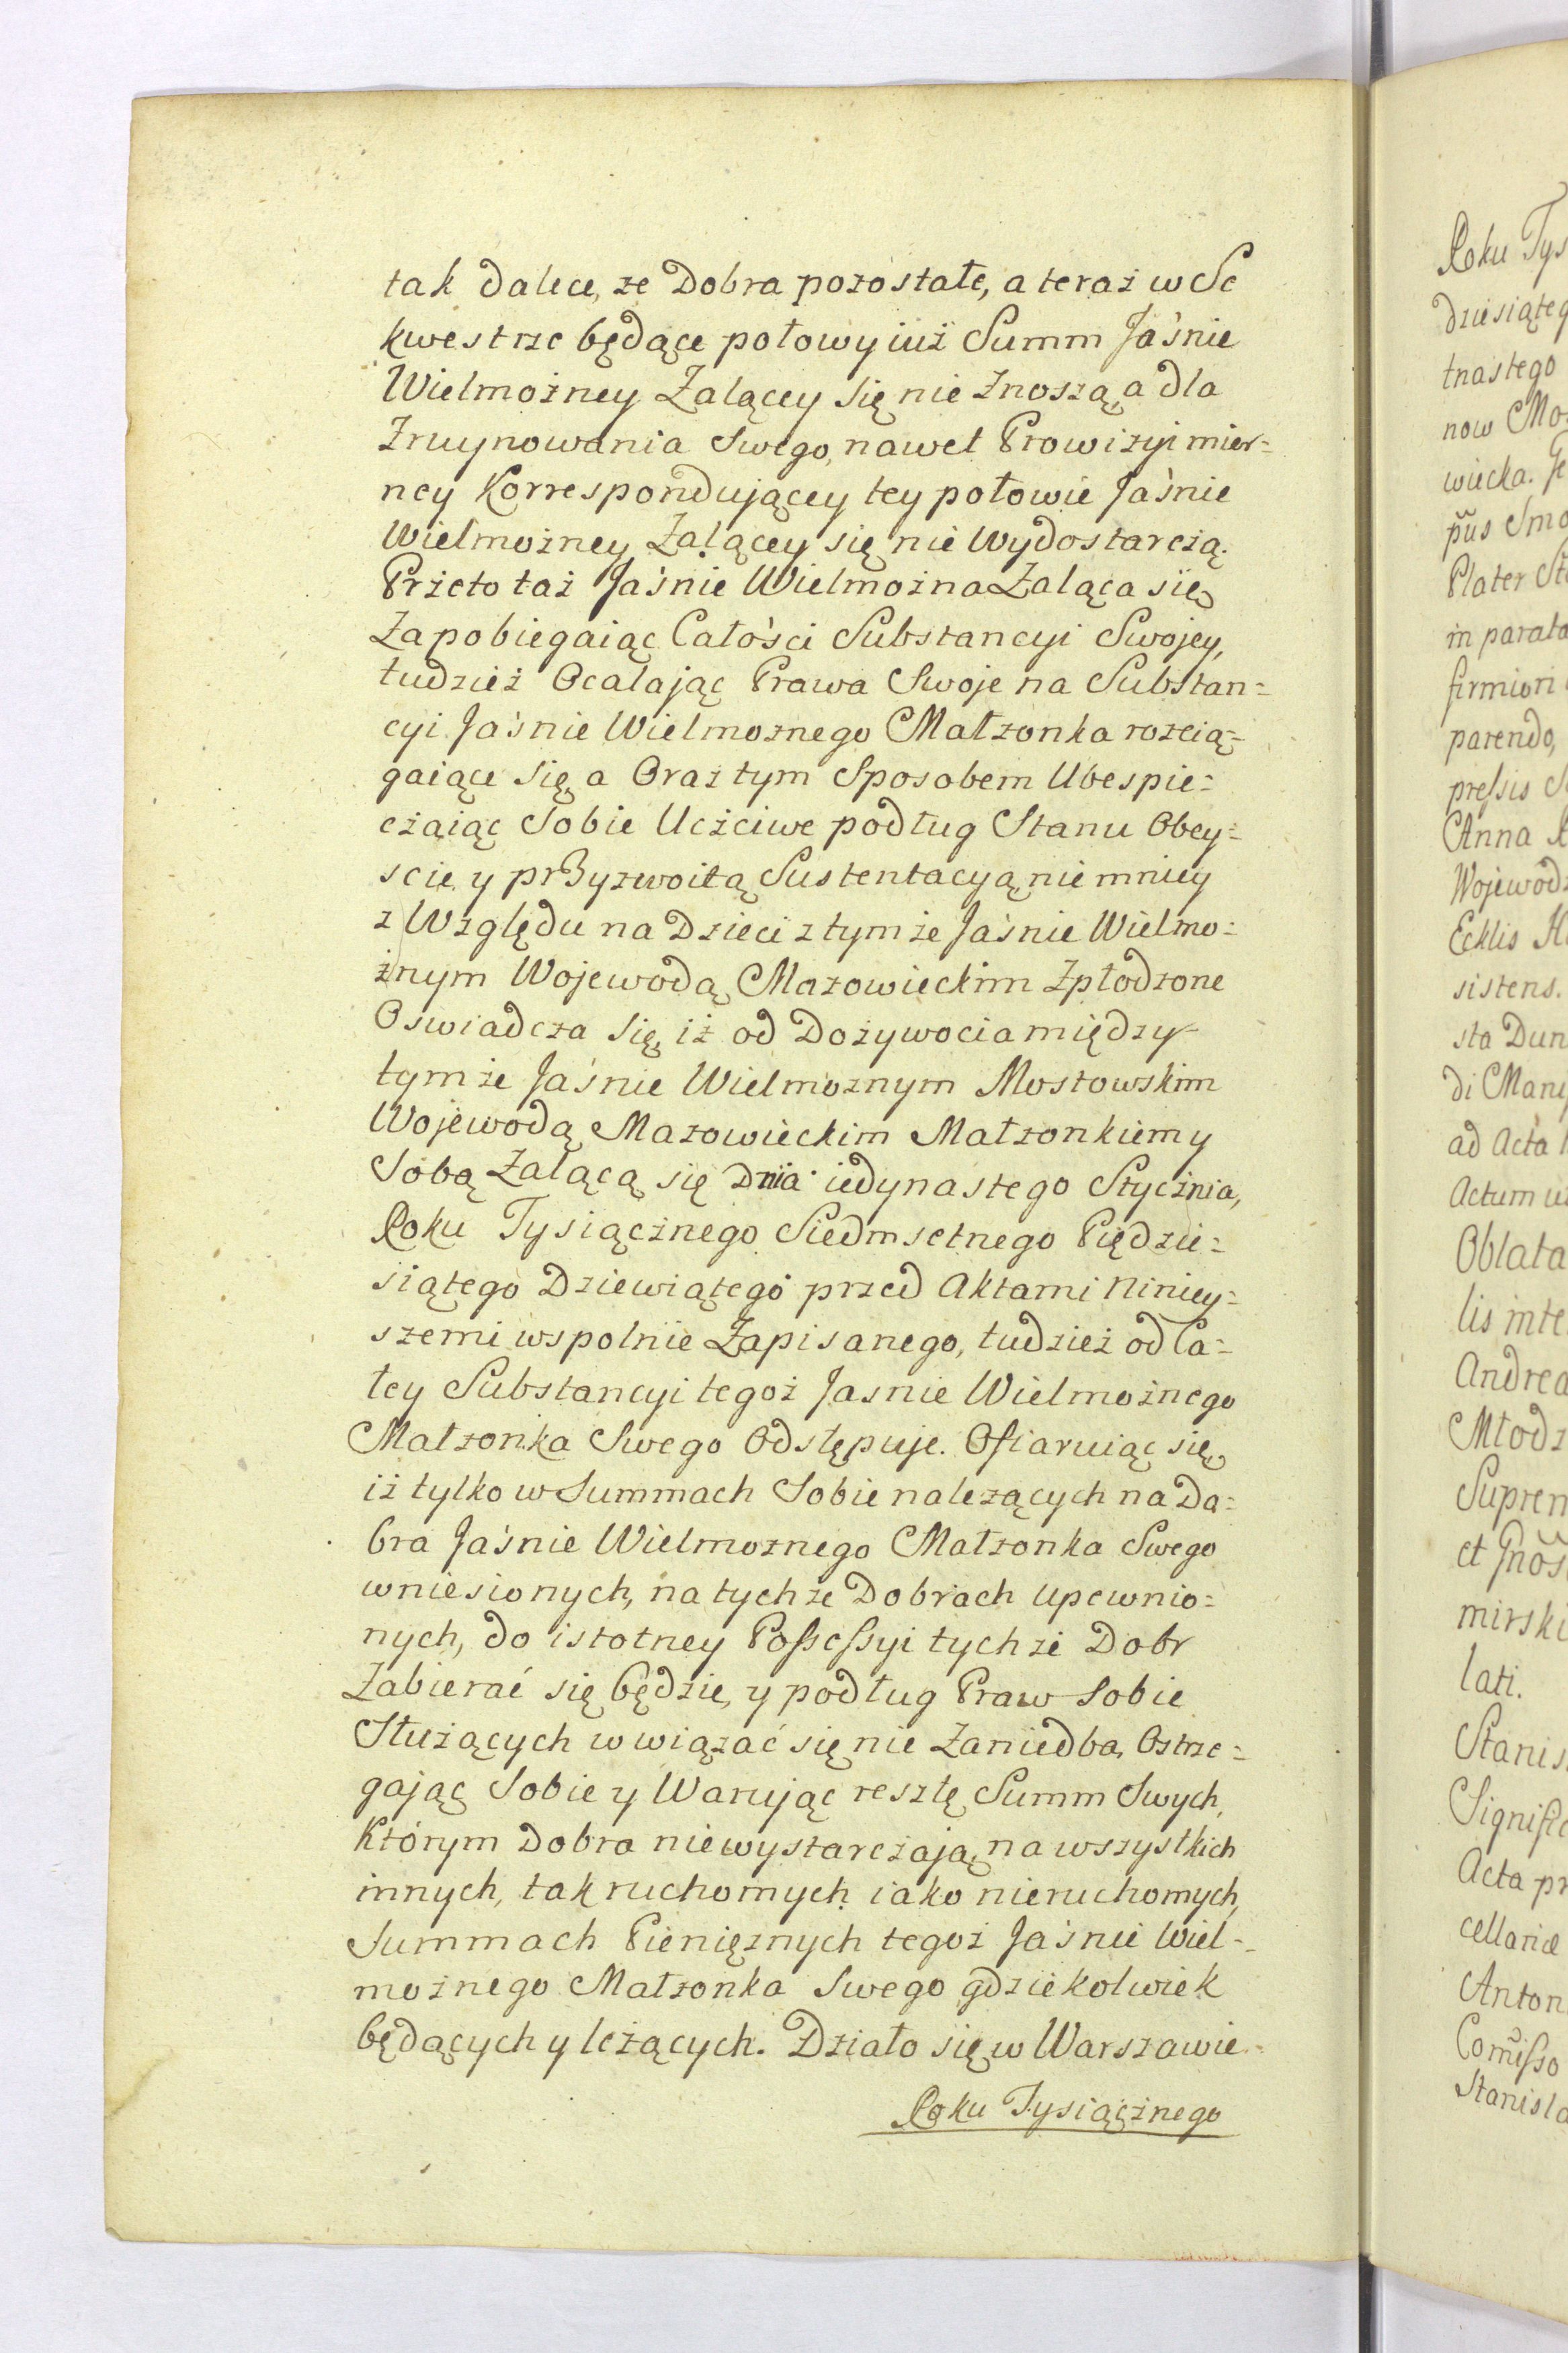 tak dalece, ze Dobra pozostałe, a teraz w Se
kwestrze będące połowy iuż Summ Jaśnie
Wielmożney Żalącey się nie znoszą, a dla
Zruynowania swego, nawet Prowizyi mier=
ney Korrespondującey tey połowie Jaśnie
Wielmożney Żalącey się nie wydostarczą.
Przeto taż Jaśnie Wielmożna Żaląca się
Zapobiegaiąc Całości Substancyi Swojey,
tudzież Ocalając Prawa Swoje na Substan=
cyi Jaśnie Wielmoznego Małzonka rozcią=
gaiące się, a Oraz tym Sposobem Ubespie=
czaiąc Sobie Uczciwe podług Stanu Obey=
scie y przyzwoitą Sustentacyą, nie mniey
z Względu na Dzieci z tymże Jaśnie Wielmo=
żnym Wojewodą Mazowieckim Zpłodzone
Oswiadcza się, iż od Dożywocia między
tymże Jaśnie Wielmoznym Mostowskim
Wojewodą Mazowieckim Małzonkiem y
Sobą Żalącą się Dnia iedynastego Stycznia,
Roku Tysiącznego Siedmsetnego Pięдzie=
siątego Dziewiątego przed Aktami Niniey=
szemi wspolnie Zapisanego, tudzież od Ca=
łey Substancyi tegoż Jasnie Wielmożnego
Małzonka Swego Odstępuje. Ofiaruiąc się,
iż tylko w Summach Sobie nalezących na Do=
bra Jaśnie Wielmoznego Małzonka Swego
wniesionych, na tychze Dobrach upewnio=
nych, do istotney Possessyi tychże Dobr
Zabierać się będzie, y podług Praw Sobie
Służących wwiązać się nie Zaniedba, Ostrze=
gając Sobie y Warując resztę Summ Swych,
Którym Dobra niewystarczają, na wszystkich
innych, tak ruchomych iako nieruchomych,
Summach Pieniężnych tegoż Jaśnie Wiel=
możnego Małzonka Swego gdziekolwiek
będących y leżących. Działo się w Warszawie
Roku Tysiącznego
Roku Tys
dziesiąteg
tnastego
now Mo
wiecka. Je
pus Smo
Plater St
in parata
firmiori
parendo,
pressis S
Anna
Wojewodz
Ecklis H
sistens.
sta Dun
di Manip
ad Acta
Actum u
Oblata
lis inte
Andrea
Młodz
Suprem
et Gnos
mirski
lati.
Stanis
Signific
Acta pr
cellariæ
Anton
Comisso
Stanisla